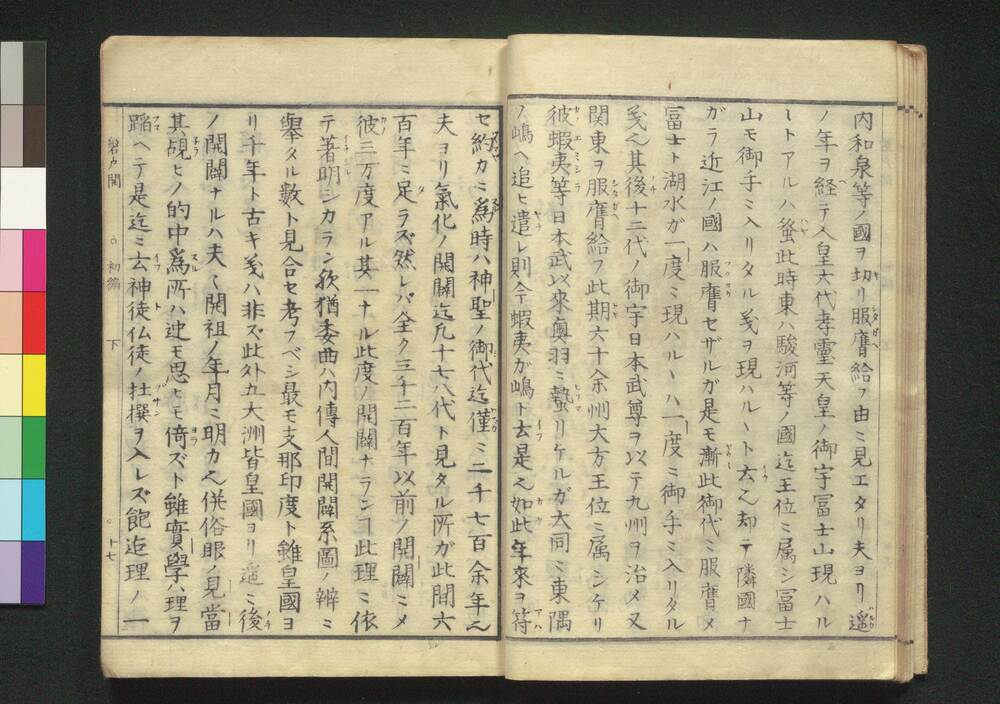 内和泉等ノ國ヲ切リ服膺給フ由ミ見エタリ夫ヨリ遥
ノ年ヲ経テ人皇六代孝霊天皇ノ御宇冨士山現ハル
ヽトアルハ蚤此時東ハ駿河等ノ國迄王位ミ属シ冨士
山モ御手ミ入リタル義ヲ現ハルヽト云〆却テ隣國ナ
ガラ近江ノ國ハ服膺セザルガ是モ漸此御代ミ服膺メ
冨士ト湖水ガ一度ミ現ハルヽハ一度ミ御手ミ入リタル
義〆其後十二代ノ御宇日本武尊ヲ以テ九州ヲ治メ又
関東ヲ服膺給フ此期六十余州大方王位ミ属シケリ
彼蝦夷等日本武以來奥羽ミ蟄リケルガ大同ミ東隅
ノ嶋ヘ追ヒ遣レ則今蝦夷ガ嶋ト云是〆如此年來ヲ符
セ約カミ爲時ハ神聖ノ御代迄僅ミ二千七百余年〆
夫ヨリ氣化ノ開闢迄凡十七八代ト見タル所ガ此間六
百年ミ足ラズ然レバ全ク三千二百年以前ノ開闢ミメ
彼三万度アル其一ナル此度ノ開闢ナランヿ此理ミ依
テ著明シカラン欤猶委曲ハ内傳人間開闢系圖ノ辨ミ
擧タル數ト見合セ考フベシ最モ支那印度ト雖皇國ヨ
リ千年ト古キ義ハ非ズ此外五大洲皆皇國ヨリ遥ミ後
ノ開闢ナルハ夫〻開祖ノ年月ミ明カ〆併俗眼ノ見當
其覘ヒノ的中為所ハ迚モ思ヒモ倚ズト雖實學ハ理ヲ
蹈ヘテ是迄ミ云神徒仏徒ノ杜撰ヲ入レズ飽迄理ノ一
初編 下
十七